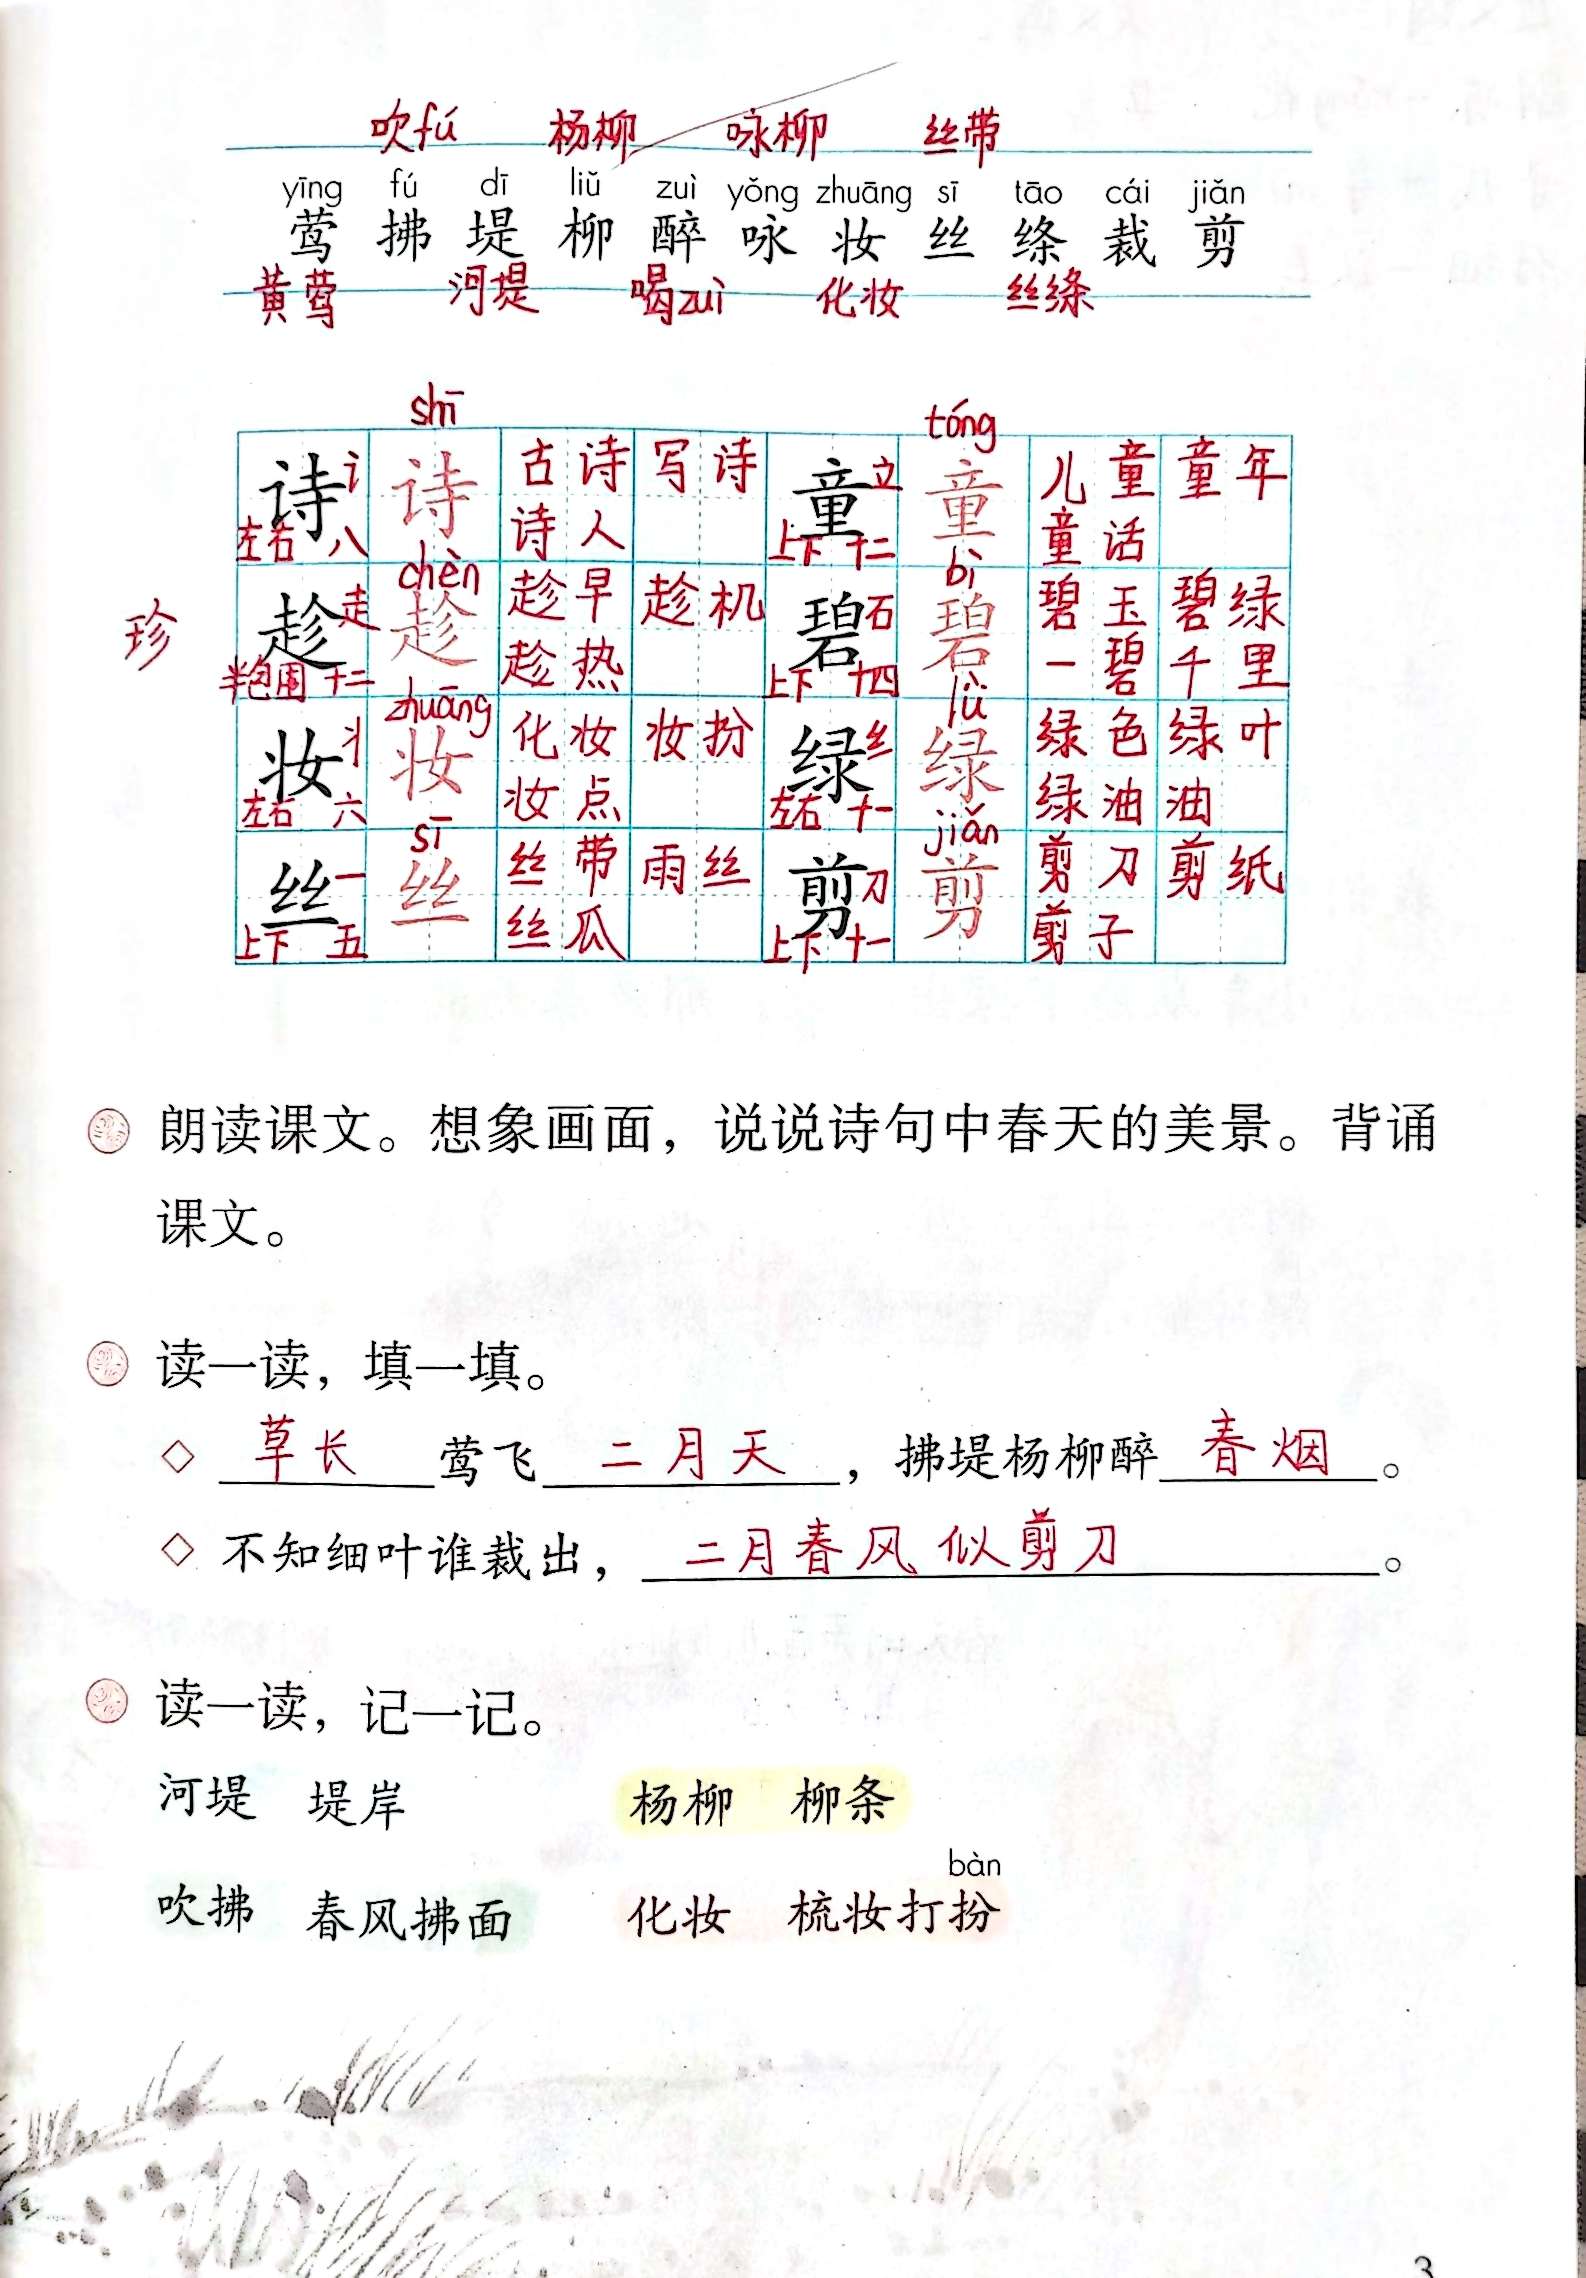 吹fú 杨柳 咏柳 丝带
yīng fú dī liǔ zuì yǒng zhuāng sī tāo cái jiǎn
莺 拂 堤 柳 醉 咏 妆 丝 绦 裁 剪
黄莺 河堤 喝zuì 化妆 丝绦
shī tóng
诗 讠 诗 古诗 写诗 童 立 童 儿童 童年
左右 八 诗人 上下 十二 童话
chèn bì
珍 趁 走 趁 趁早 趁机 碧 石 碧 碧玉 碧绿
半包围 十二 趁热 上下 十四 一碧千里
zhuāng lǜ
妆 丬 妆 化妆 妆扮 绿 纟 绿 绿色 绿叶
左右 六 妆点 左右 十一 绿油油
sī jiǎn
丝 一 丝 丝带 雨丝 剪 刀 剪 剪刀 剪纸
上下 五 丝瓜 上下 十一 剪子
朗读课文。想象画面，说说诗句中春天的美景。背诵
课文。
读一读，填一填。
◇ 草长莺飞二月天，拂堤杨柳醉春烟。
◇ 不知细叶谁裁出，二月春风似剪刀。
读一读，记一记。
河堤 堤岸 杨柳 柳条
bàn
吹拂 春风拂面 化妆 梳妆打扮
3